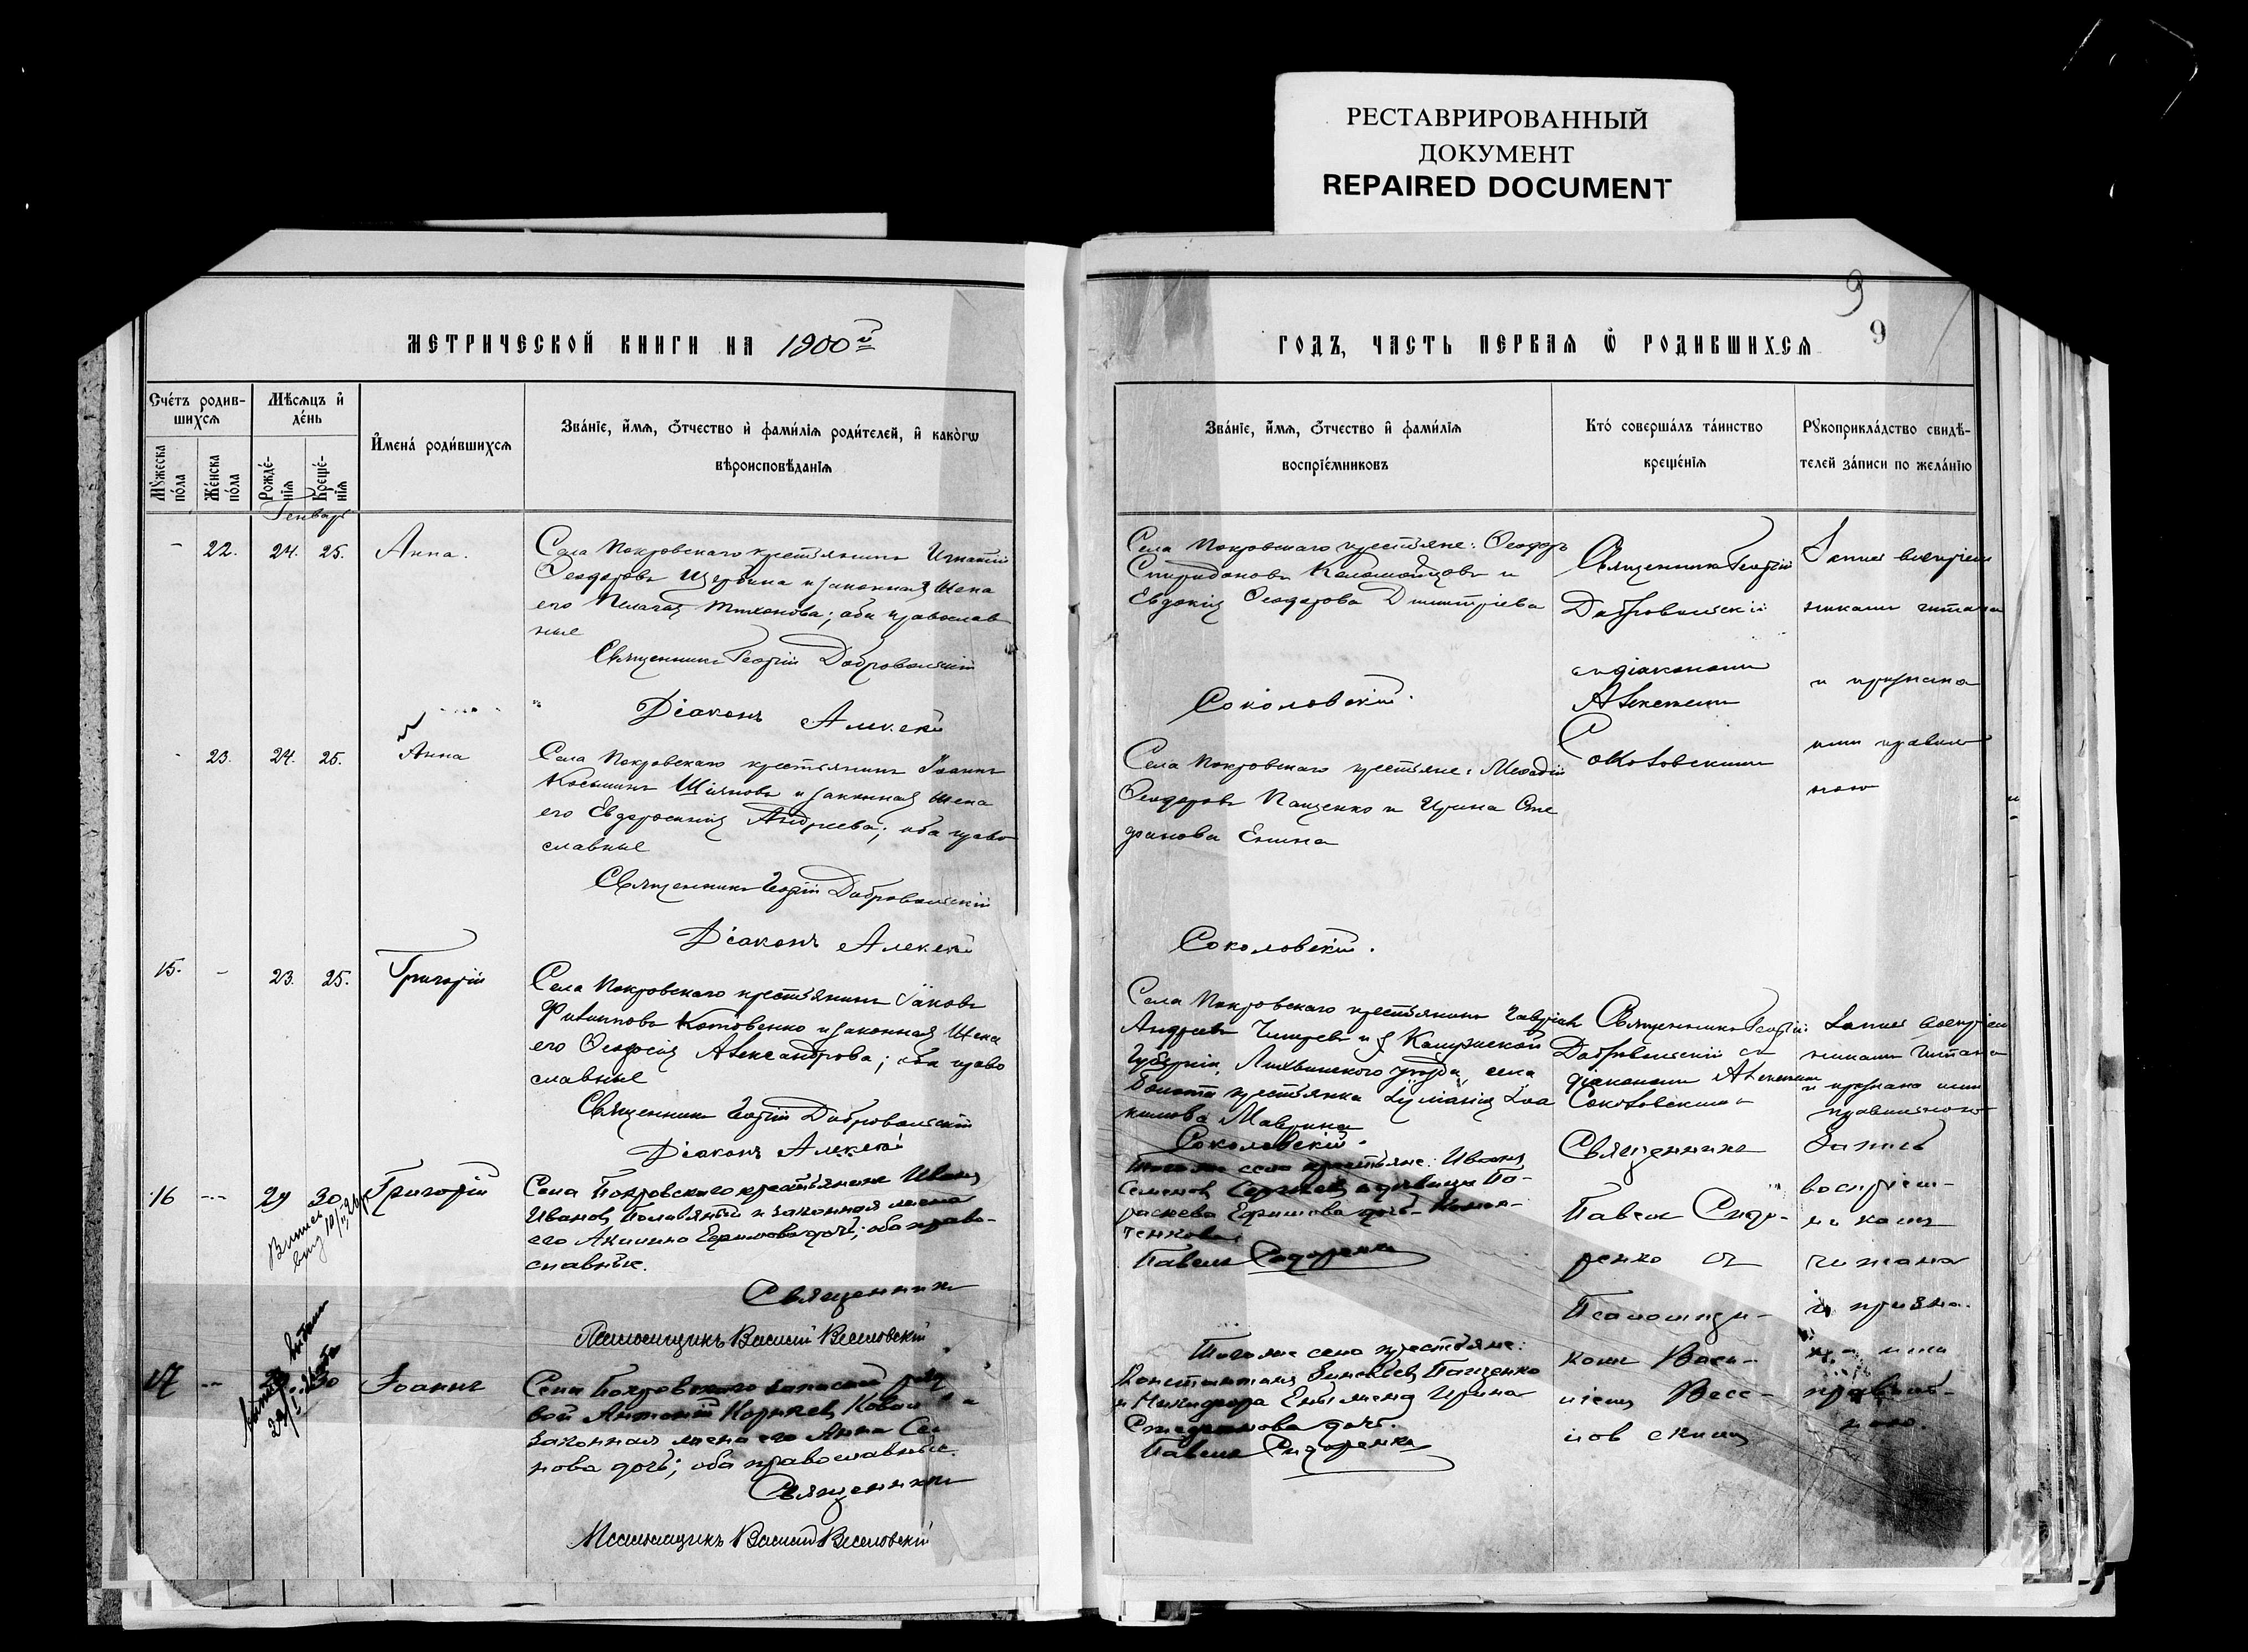 РЕСТАВРИРОВАННЫЙ
ДОКУМЕНТ
REPAIRED DOCUMENT
9
9
МЕТРИЧЕСКОЙ КНИГИ НА 1900й
ГОДЪ, ЧАСТЬ ПЕРВАЯ Ѡ РОДИВШИХСЯ
Сче́тъ родив-
шихся
Мѣсяцъ и҆
де́нь
И҆мена́ роди́вшихся
Зва́нїе, и҆́мя, о҆́тчество и҆ фами́лїя роди́телей, и҆ како́гѡ
вѣроисповѣ́данїя
Мꙋ́жеска
по́ла
Же́нска
по́ла
Рожде́-
нїя
Креще́-
нїя
Зва́нїе, и҆́мя, о҆́тчество и҆ фами́лїя
воспрїе́мниковъ
Кто́ соверша́лъ та́инство
креще́нїя
Рꙋкоприкла́дство свидѣ́-
телей за́писи по жела́нїю
Генварь
- 22. 24. 25. Анна.
Села Покровскаго крестьянинъ Игнатій
Ѳеодоровъ Щербина и законная жена
его Пелагія Тихонова; оба православ
ные
Священникъ Георгій Добровольскій
Діаконъ Алексій
Села Покровскаго крестьяне: Ѳеодоръ
Спиридоновъ Коломойцовъ и
Евдокія Ѳеодорова Дмитріева
Соколовскій.
Священникъ Георгій
Добровольскій
съ діакономъ
Алексеемъ
Соколовскимъ
Запись воспріем
никами читана
и признана
ими правиль
ною
- 23. 24. 25. Анна
Села Покровскаго крестьянинъ Іоаннъ
Косьминъ и законная жена
его Евдоросинія Андреева; оба право
славные
Священникъ Георгій Добровольскій
Діаконъ Алексій
Села Покровскаго крестьяне: Меѳодій
Ѳеодоровъ Пащенко и Ирина Сте
фанова Енина
Соколовскій.
15. - 23. 25. Григорій
Села Покровскаго крестьянинъ Іаковъ
Филипповъ Котовенко и законная жена
его Ѳеодосія Александрова; оба право
славные
Священникъ Георгій Добровольскій
Діаконъ Алексій
Села Покровскаго крестьянинъ Гавріилъ
Андреевъ и Калужской
Губерніи, Лихвинского уезда, села
крестьянка Іоа
кимова Маврина
Соколовскій.
Священникъ Георгій
Добровольскій съ
діакономъ Алексеемъ
Соколовскимъ
Запись воспріем
никами читана
и признана ими
правильною
16 -- 29 30 Григорій
Села Покровскаго крестьянинъ Иванъ
Ивановъ и законная жена
его Акилина Ефимова дочь; оба право-
славные.
Священникъ
Псаломщикъ Василій Веселовскій
Тогоже села крестьяне: Иванъ
Семеновъ и девица Па-
раскева Ефимова дочь
Павелъ Сидоренко
Священникъ
Павелъ Сидо-
ренко съ
Псаломщи-
комъ Васи-
ліемъ Весе-
ловскимъ
Запись
воспріем-
никами
читана
и призна-
на ими
правиль-
ною.
17 -- 30 Іоаннъ
Села Покровскаго запасный рядо
вой Антоній Корнѣевъ
законная жена его Анна
нова дочь; оба православные.
Священникъ
Псаломщикъ Василій Веселовскій
Тогоже села крестьяне:
Константинъ Зиновьевъ Пащенко
и Никифора жена Ирина
Стефанова дочь.
Павелъ Сидоренко